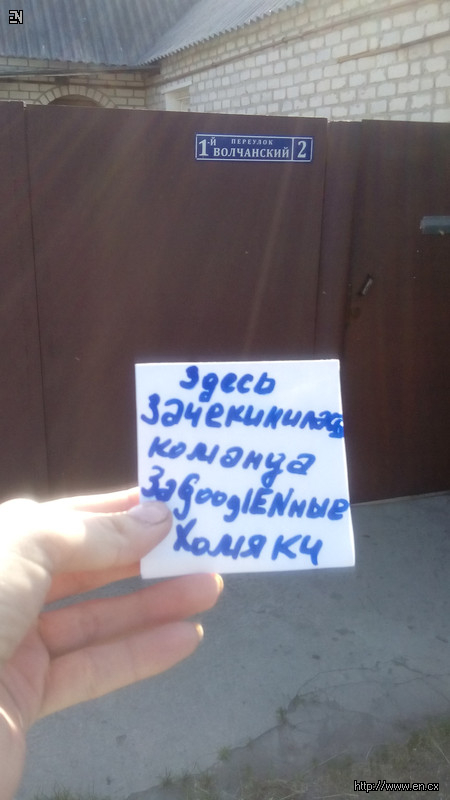 EN
1-й ПЕРЕУЛОК ВОЛЧАНСКИЙ 2
Здесь
Зачекинилась
команда
ЗаGooglENные
Хомяки
http://www.en.cx